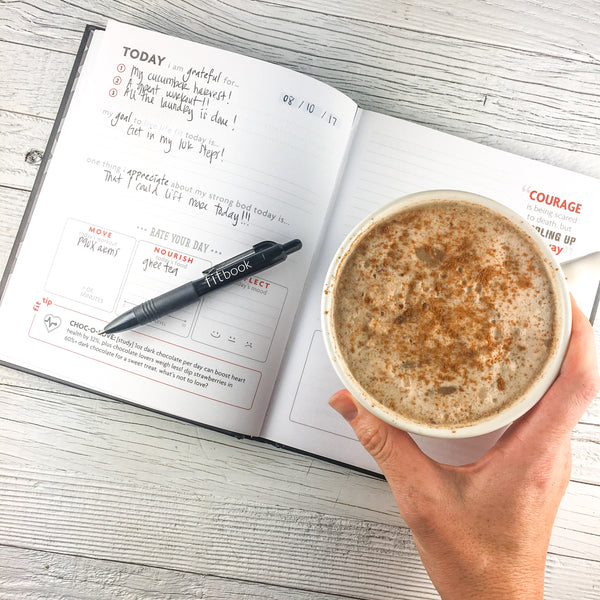 TODAY i am grateful for...
08 / 10 / 17
1 My cucumber harvest!
2 A great workout!!
3 All the laundry is done!
my goal to live life fit today is...
Get in my 10k steps!
one thing i appreciate about my strong bod today is...
That I could lift more today!!!
*** RATE YOUR DAY ***
MOVE
today's workout
NOURISH
today's food
REFLECT
today's mood
arms
ghee tea
# OF
MINUTES
10
fitbook
fit tip
CHOC-O-LOVE: [study] 1oz dark chocolate per day can boost heart
health by 32%, plus chocolate lovers weigh less! dip strawberries in
60%+ dark chocolate for a sweet treat. what's not to love?
"COURAGE
is being scared
to death, but
DLING UP
way."